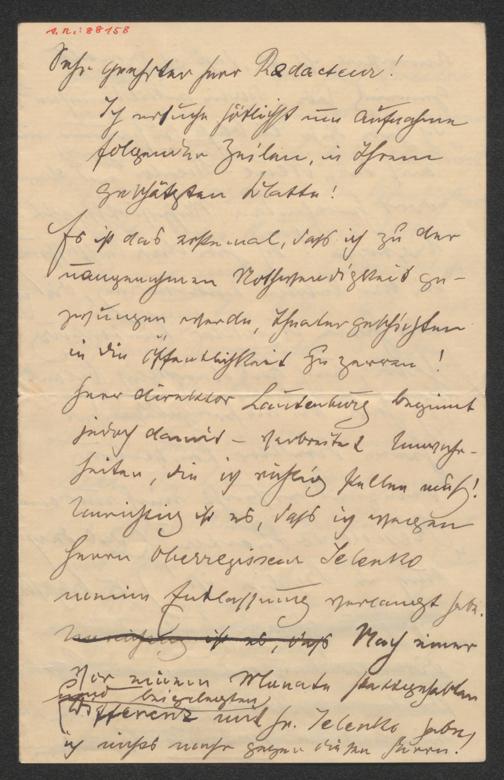 A.N.: 88158
Sehr geehrter Herr Redacteur!
Ich ersuche höflichst um Aufnahme
folgender Zeilen, in Ihrem
geschätzten Blatte!
Es ist das erstemal, daß ich zu der
unangenehmen Nothwendigkeit ge-
zwungen werde, Theatergeschichten
in die Öffentlichkeit zu zerren!
Herr Direktor Lautenburg beginnt
jedoch damit – verbreitet Unwahr-
heiten, die ich richtig stellen muß!
Unrichtig ist es, daß ich wegen
Herrn Oberregisseur Jelenko
meine Entlassung verlangt habe.
Unrichtig ist es, daß Nach einer
vor einem Monate stattgehabten
und beigelegten
Differenz mit Hr. Jelenko habe
ich nichts mehr gegen diesen Herrn!